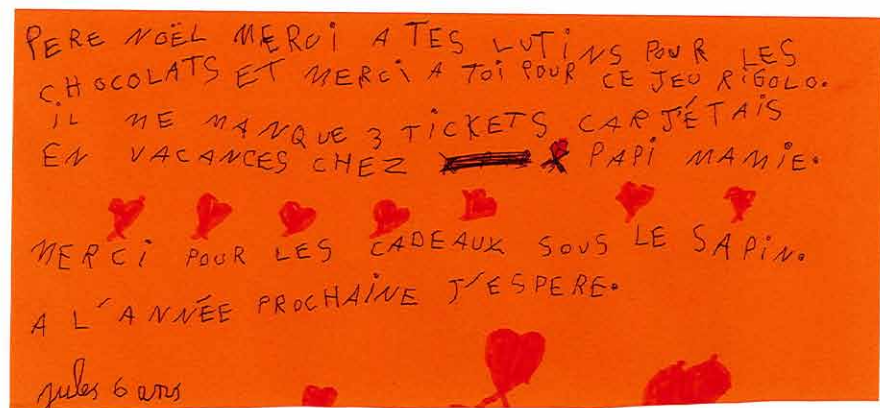 PERE NOËL MERCI A TES LUTINS POUR LES
CHOCOLATS ET MERCI A TOI POUR CE JEU RIGOLO.
IL ME MANQUE 3 TICKETS CAR J'ÉTAIS
EN VACANCES CHEZ PAPI MAMIE.
MERCI POUR LES CADEAUX SOUS LE SAPIN.
A L'ANNÉE PROCHAINE J'ESPERE.
jules 6 ans